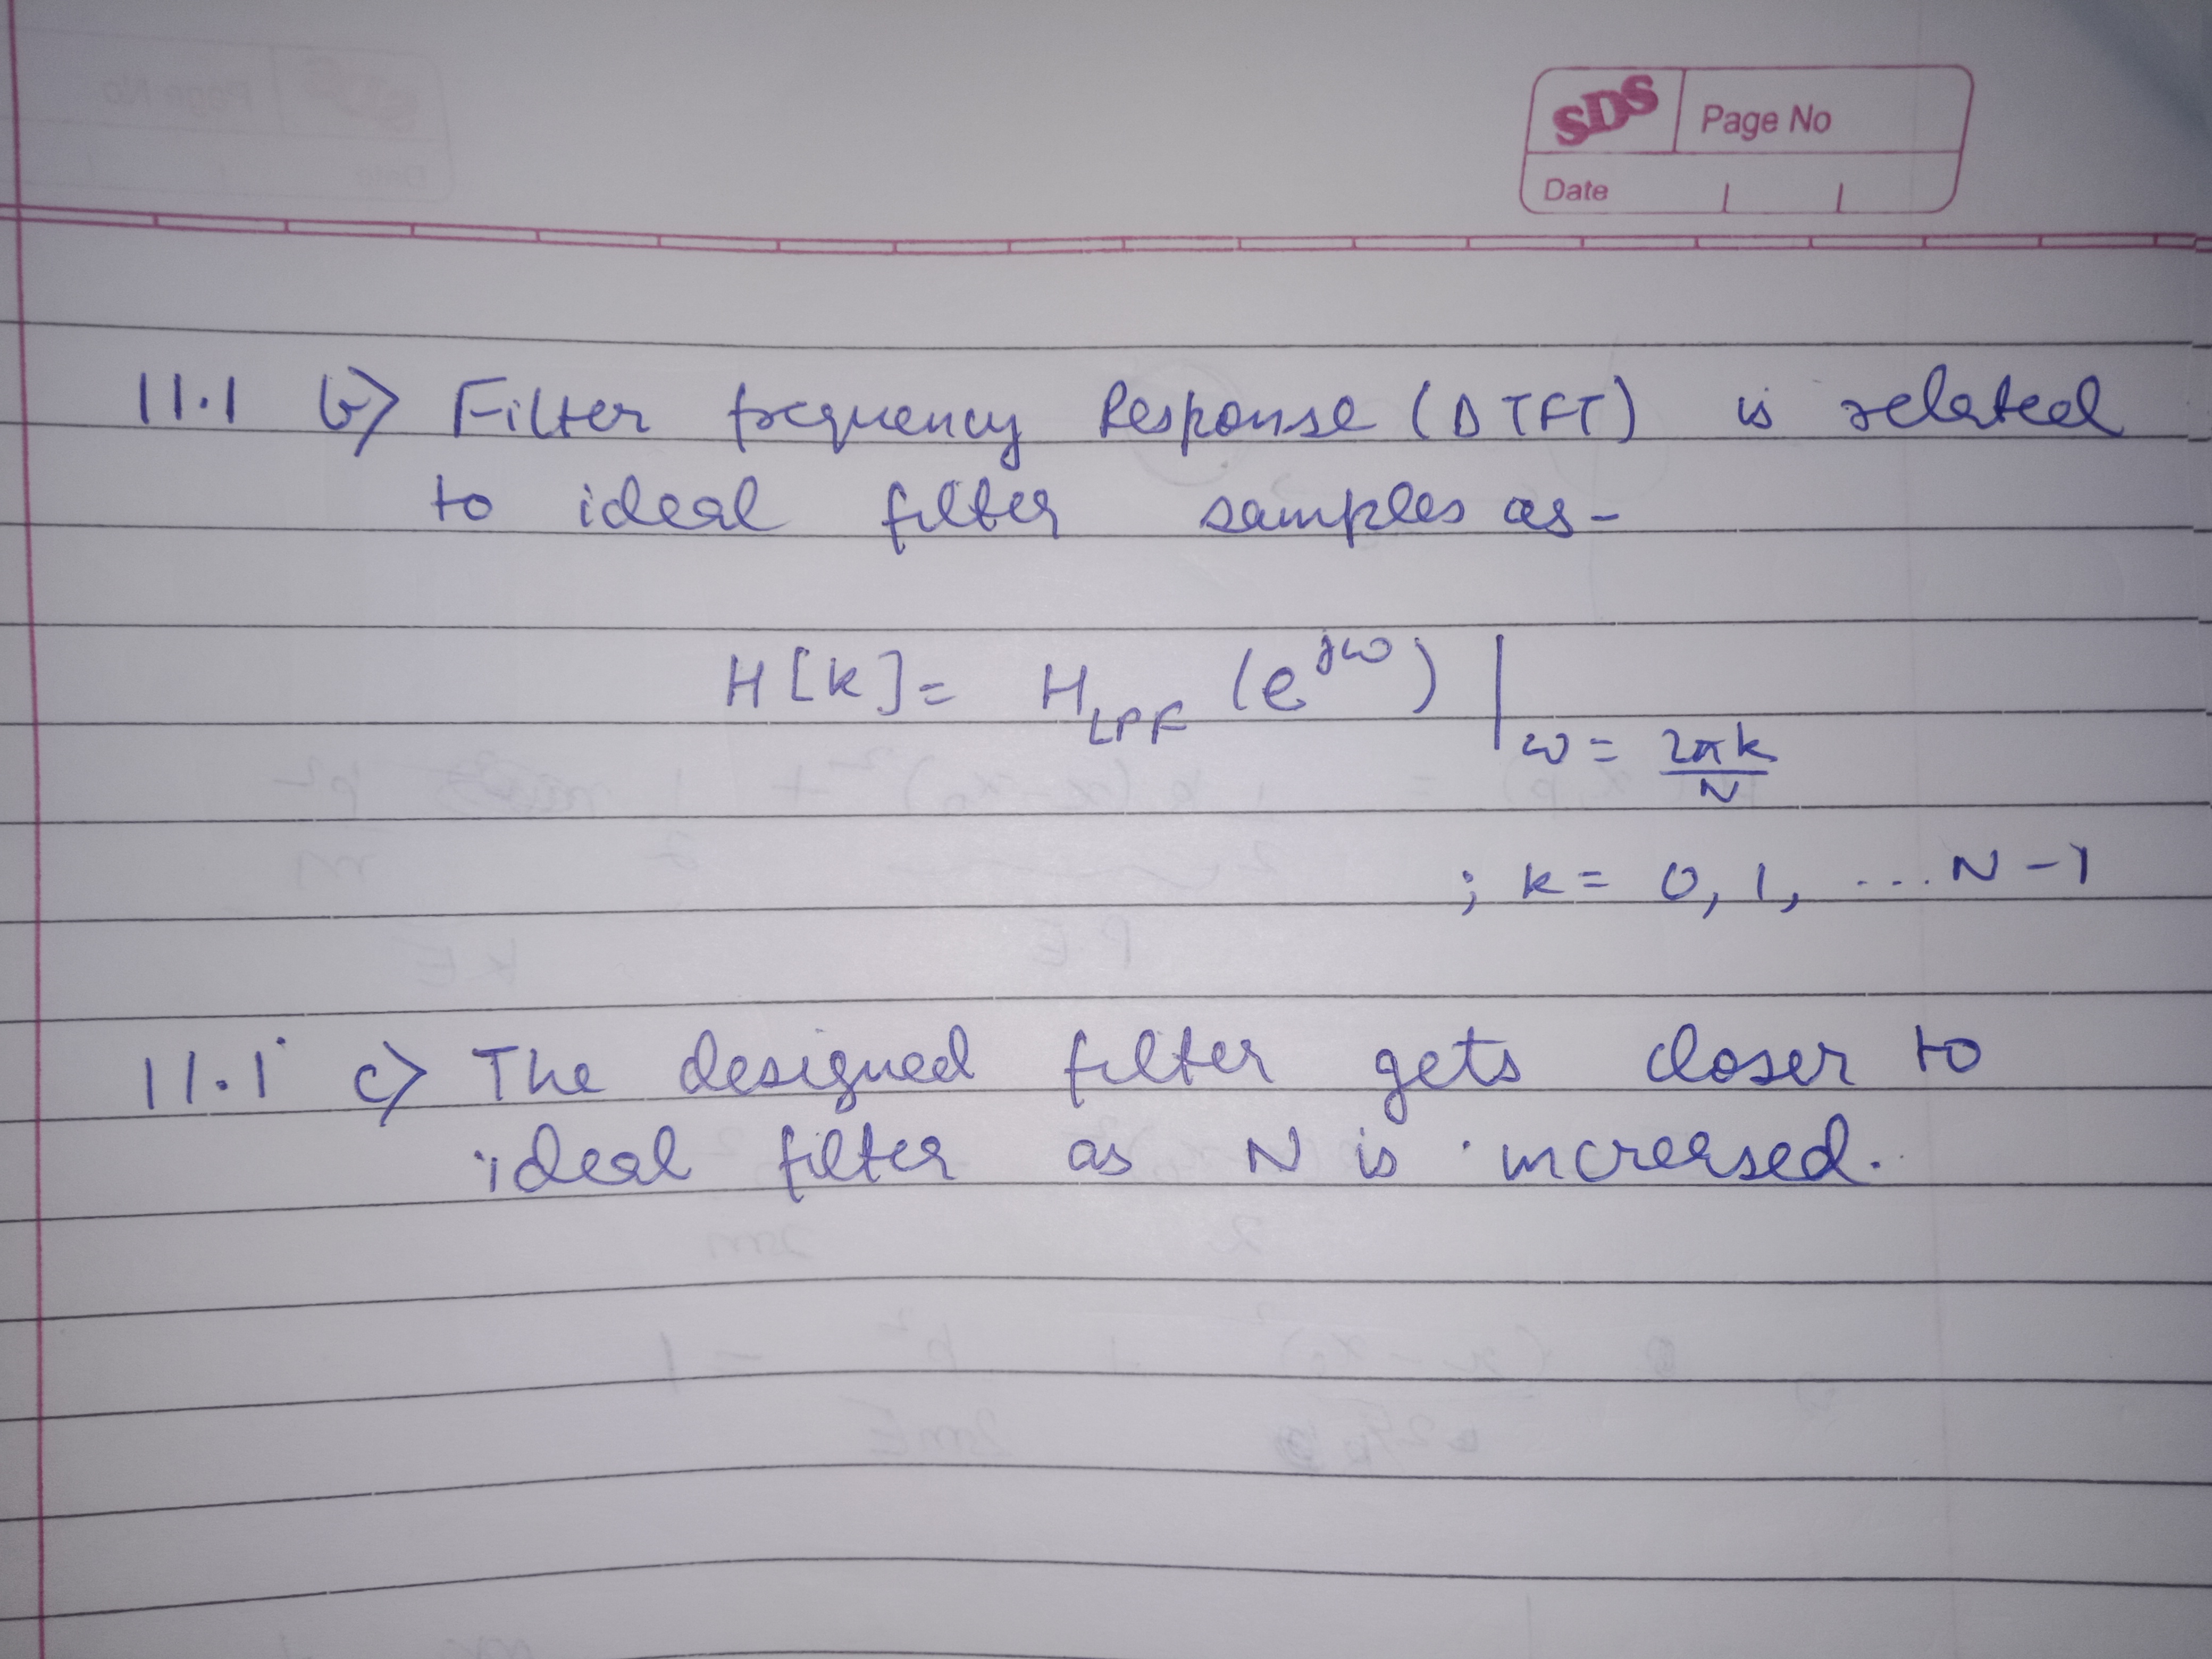 SDS Page No
Date
11.1 b) Filter frequency Response (DTFT) is related
to ideal filter samples as-
H[k] = H_LPF (e^jω) | ω = 2πk/N
; k = 0, 1, ... N-1
11.1 c) The designed filter gets closer to
ideal filter as N is increased.